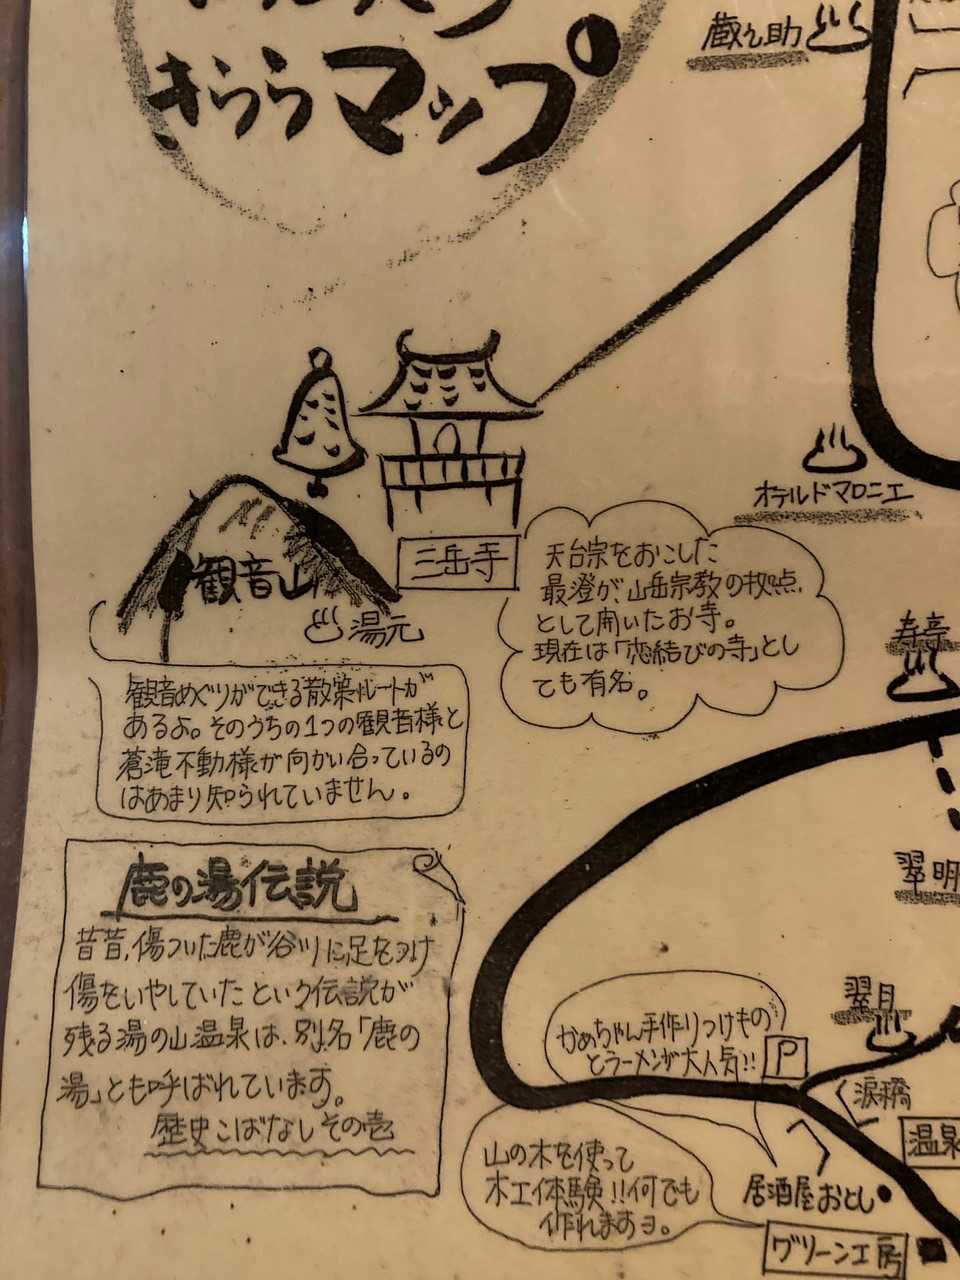 きららマップ
蔵之助
オテルドマロニエ
観音山
三岳寺
湯元
天台宗をおこした
最澄が、山岳宗教の拠点
として開いたお寺。
現在は「恋結びの寺」とし
ても有名。
寿亭
観音めぐりができる散策ルートが
あるよ。そのうちの1つの観音様と
蒼滝不動様が向かい合っているの
はあまり知られていません。
翠明
鹿の湯伝説
昔昔、傷ついた鹿が谷川に足をつけ
傷をいやしていたという伝説が
残る湯の山温泉は、別名「鹿の
湯」とも呼ばれています。
歴史こばなしその壱
翠月
かめちゃん手作りつけもの
とラーメンが大人気!!
P
涙橋
温泉
山の木を使って
木工体験!!何でも
作れますヨ。
居酒屋おとし
グリーン工房